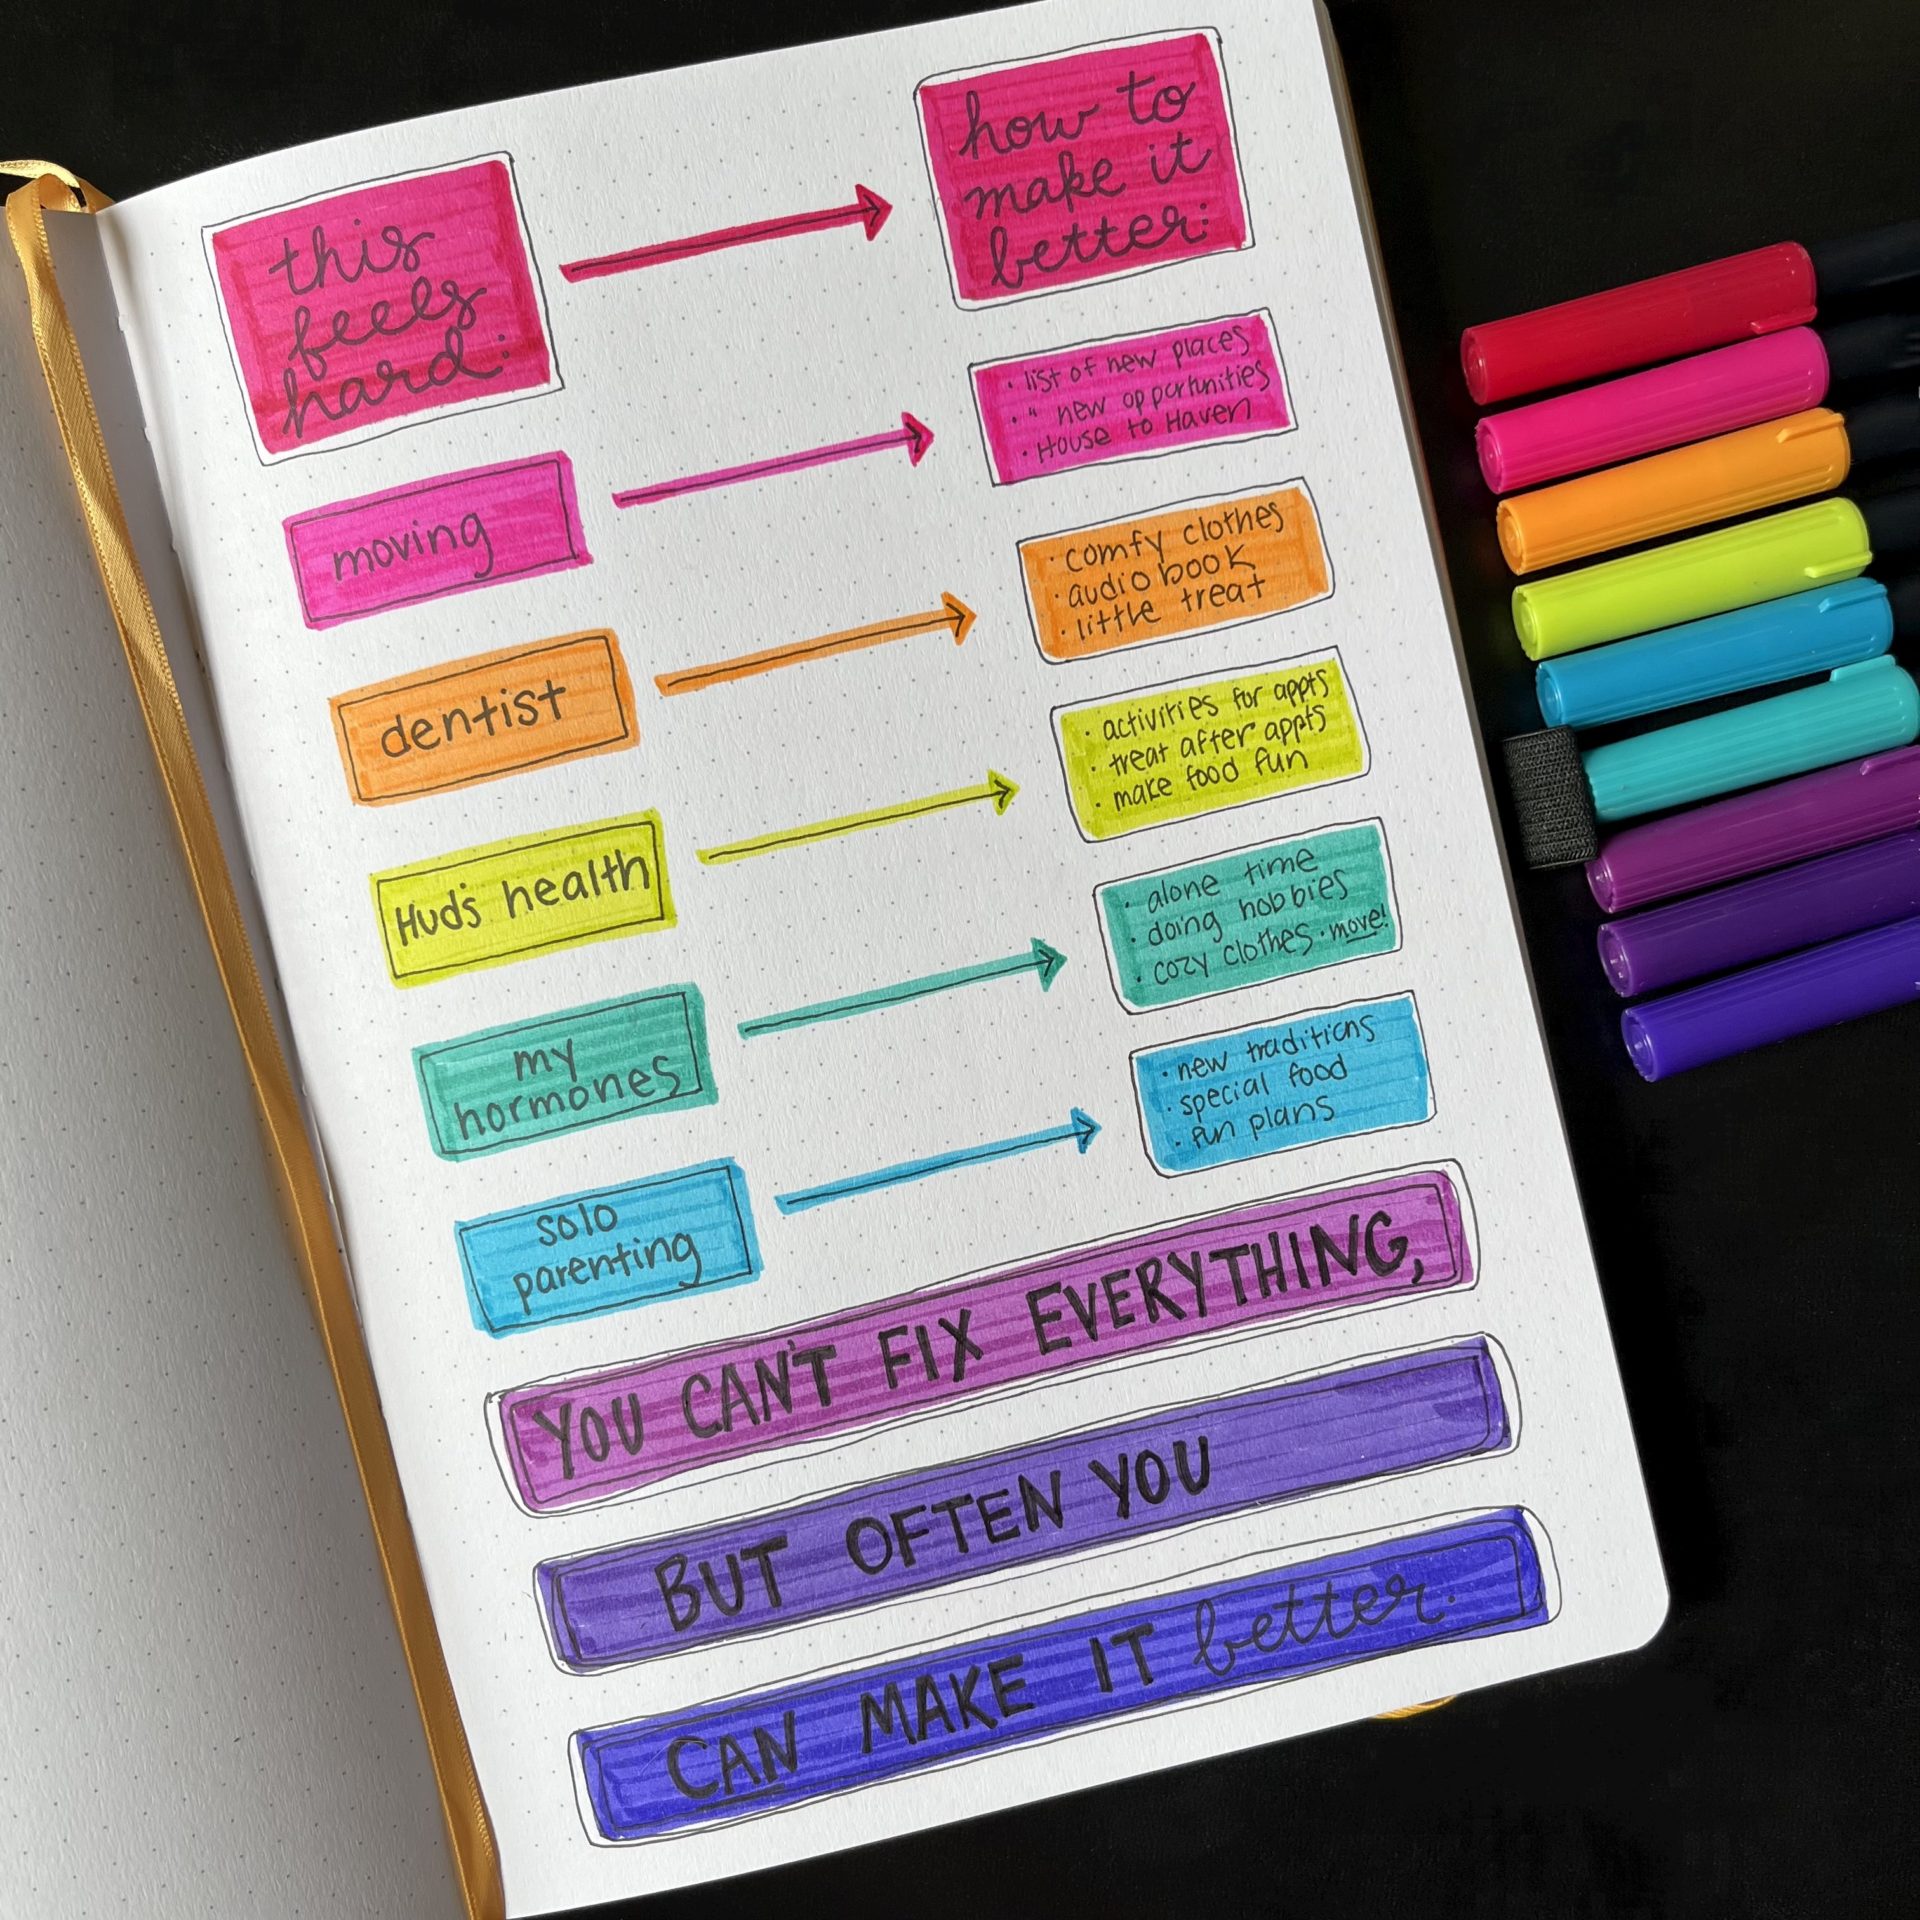 this
feels
hard:
how to
make it
better:
moving
· list of new places
· " new opportunities
· House to Haven
dentist
· comfy clothes
· audiobook
· little treat
Hud's health
· activities for appts
· treat after appts
· make food fun
my
hormones
· alone time
· doing hobbies
· cozy clothes · move!
solo
parenting
· new traditions
· special food
· fun plans
YOU CAN'T FIX EVERYTHING,
BUT OFTEN YOU
CAN MAKE IT better.